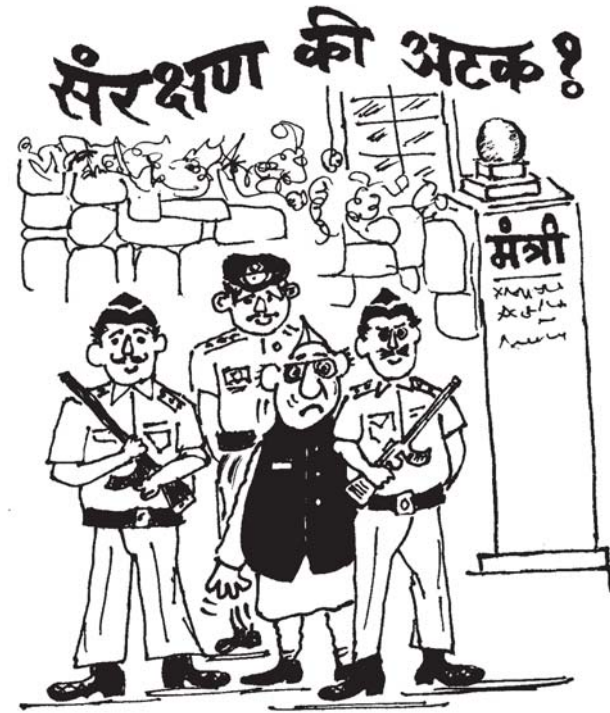 संरक्षण की अटक?
मंत्री